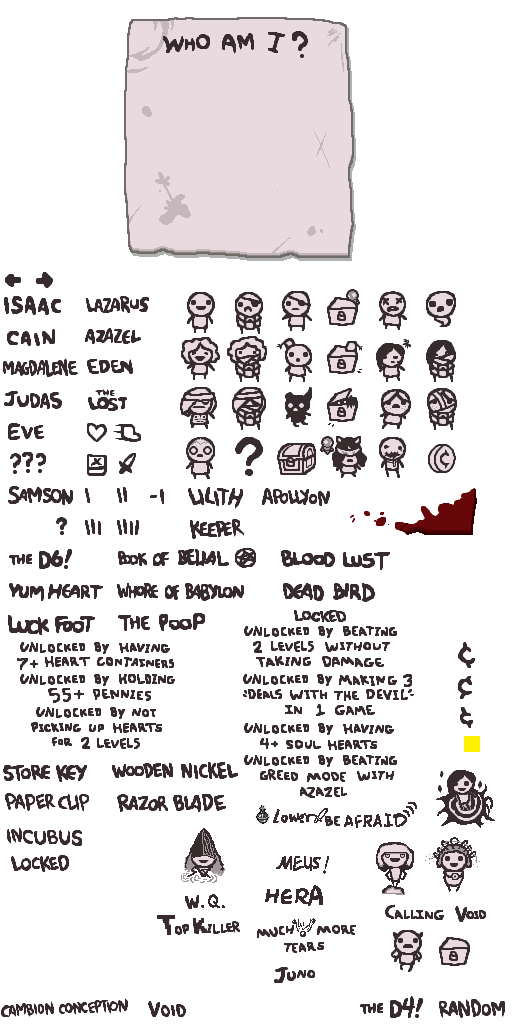 WHO AM I?
ISAAC LAZARUS
CAIN AZAZEL
MAGDALENE EDEN
JUDAS THE LOST
EVE
???
?
SAMSON I II -I LILITH APOLLYON
? III IIII KEEPER
THE D6! BOOK OF BELIAL BLOOD LUST
YUM HEART WHORE OF BABYLON DEAD BIRD
LUCK FOOT THE POOP
LOCKED
UNLOCKED BY HAVING
7+ HEART CONTAINERS
UNLOCKED BY HOLDING
55+ PENNIES
UNLOCKED BY NOT
PICKING UP HEARTS
FOR 2 LEVELS
UNLOCKED BY BEATING
2 LEVELS WITHOUT
TAKING DAMAGE
UNLOCKED BY MAKING 3
"DEALS WITH THE DEVIL"
IN 1 GAME
UNLOCKED BY HAVING
4+ SOUL HEARTS
UNLOCKED BY BEATING
GREED MODE WITH
AZAZEL
¢
¢
¢
STORE KEY WOODEN NICKEL
PAPER CLIP RAZOR BLADE
Lower BE AFRAID
INCUBUS
LOCKED
MEUS!
W.Q. HERA
TOP KILLER
CALLING VOID
MUCH MORE
TEARS
JUNO
CAMBION CONCEPTION VOID THE D4! RANDOM